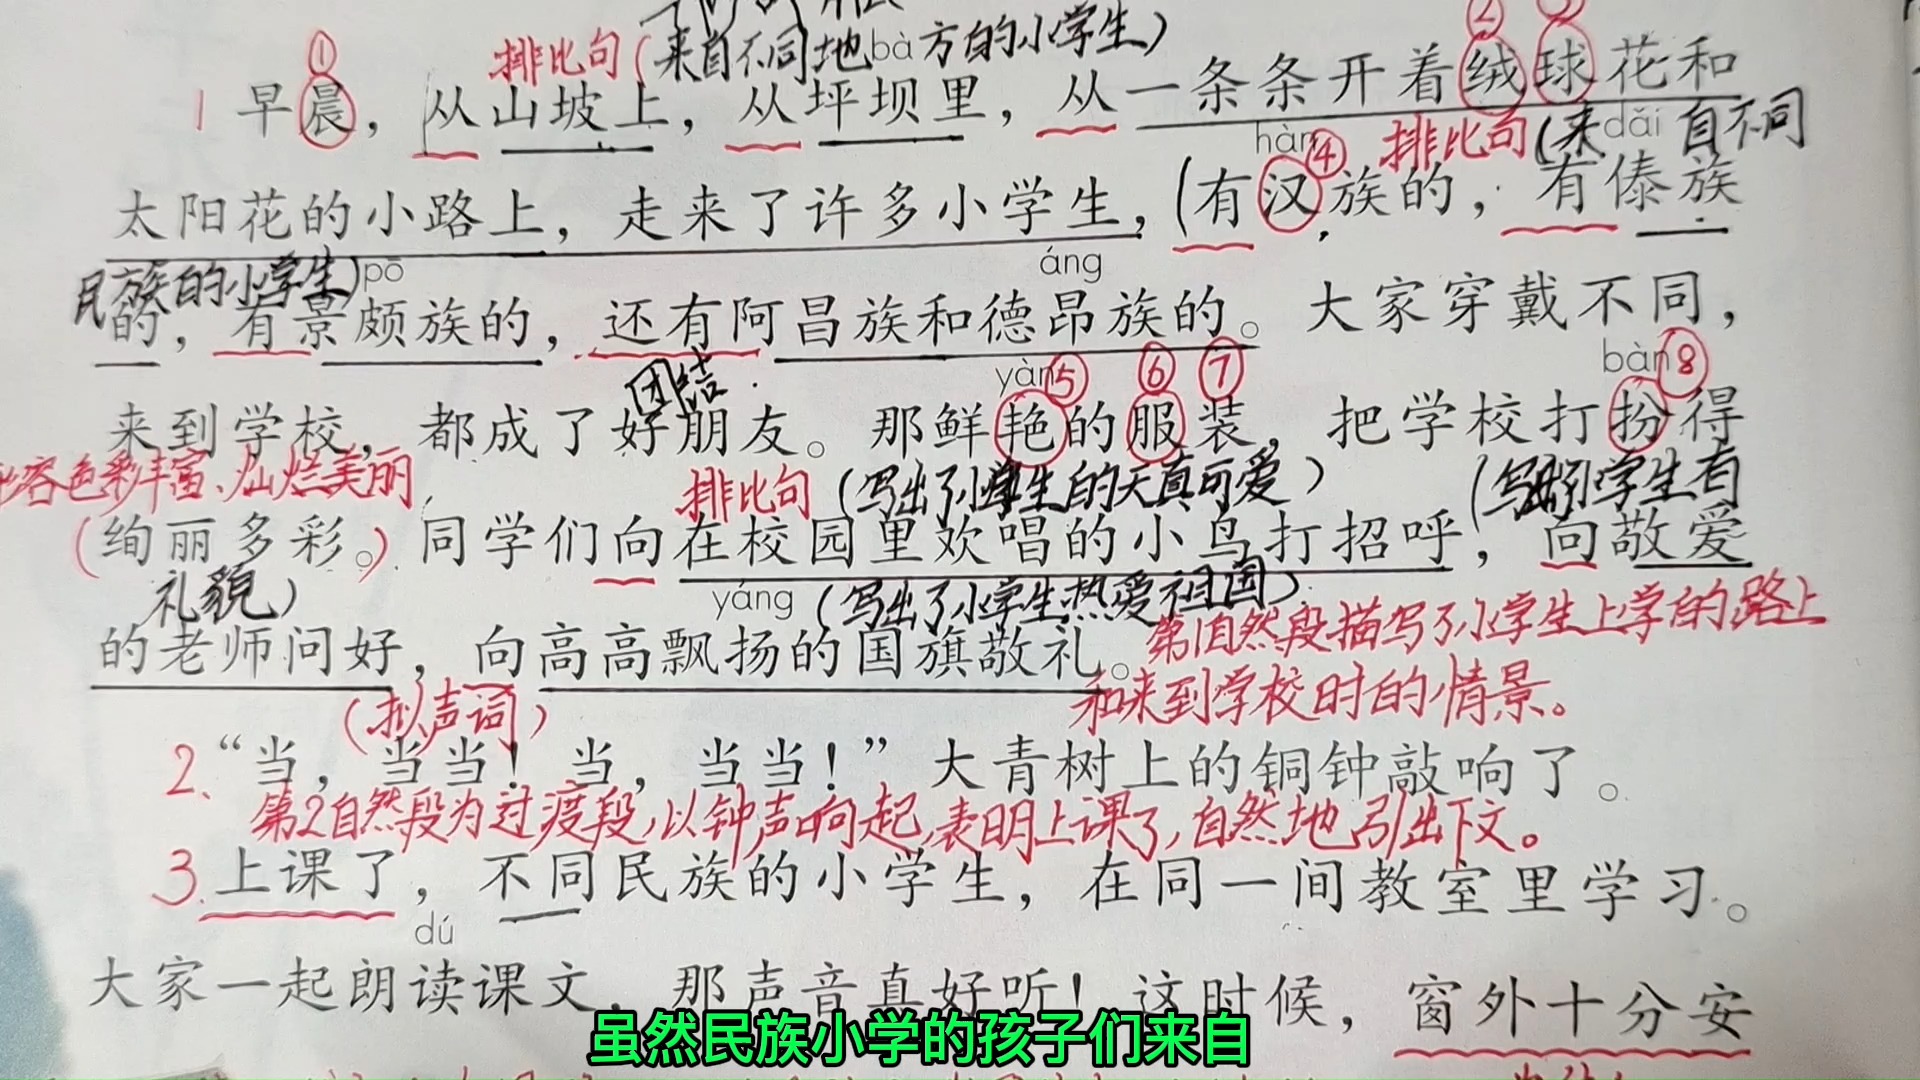 ① ② ③
排比句(来自不同地bà方的小学生)
1 早晨，从山坡上，从坪坝里，从一条条开着绒球花和
hàn ④ 排比句(来dǎi自不同
太阳花的小路上，走来了许多小学生，(有汉族的，有傣族
民族的小学生) pō áng
的，有景颇族的，还有阿昌族和德昂族的。大家穿戴不同，
团结 yàn ⑤ ⑥ ⑦ bàn ⑧
来到学校，都成了好朋友。那鲜艳的服装，把学校打扮得
容色彩丰富、灿烂美丽 排比句(写出了小学生的天真可爱) (写出了小学生有
(绚丽多彩。)同学们向在校园里欢唱的小鸟打招呼，向敬爱
礼貌) yáng (写出了小学生热爱祖国)
的老师问好，向高高飘扬的国旗敬礼。
第1自然段描写了小学生上学的路上
和来到学校时的情景。
(拟声词)
2、“当，当当！当，当当！”大青树上的铜钟敲响了。
第2自然段为过渡段，以钟声响起，表明上课了，自然地引出下文。
3、上课了，不同民族的小学生，在同一间教室里学习。
dú
大家一起朗读课文，那声音真好听！这时候，窗外十分安
虽然民族小学的孩子们来自